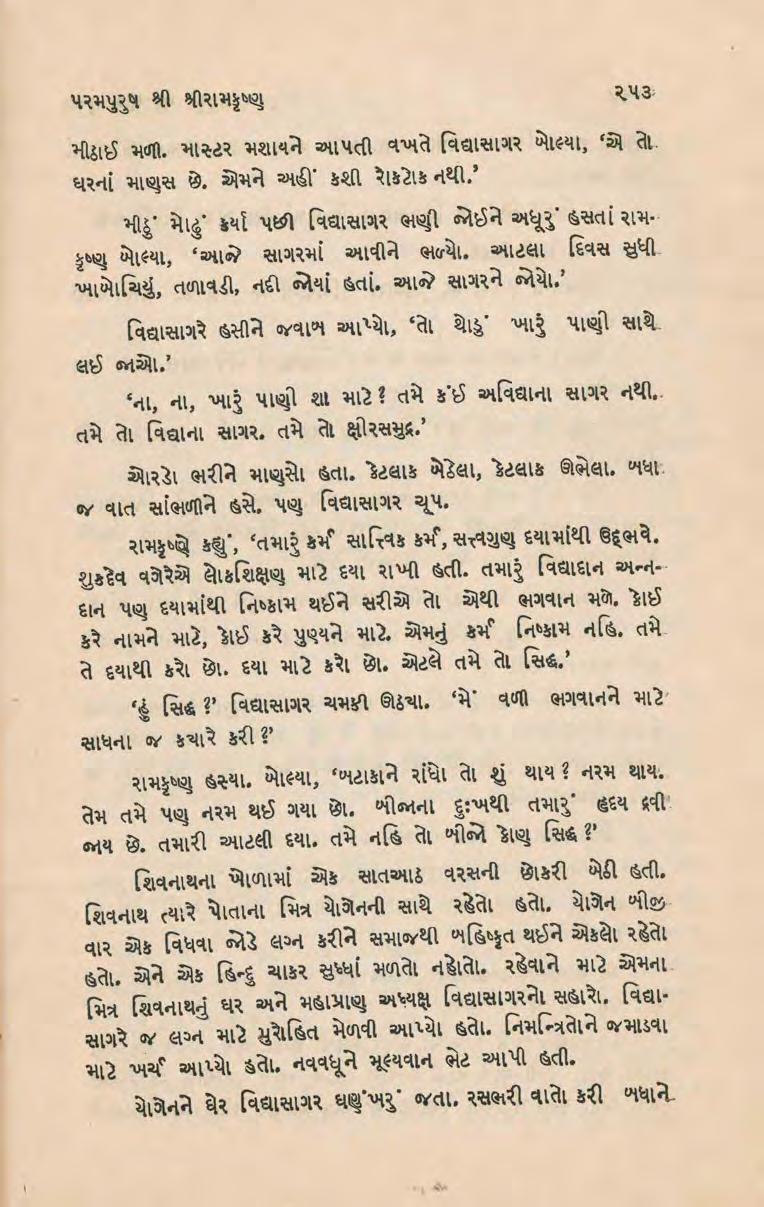 પરમપુરુષ શ્રી શ્રીરામકૃષ્ણ ૨૫૩
મીઠાઈ મળી. માસ્ટર મશાયને આપતી વખતે વિદ્યાસાગર બોલ્યા, ‘એ તો
ઘરનાં માણસ છે. એમને અહીં કશી રોકટોક નથી.’
મીઠું મોઢું કર્યા પછી વિદ્યાસાગર ભણી જોઈને અધૂરું હસતાં રામ-
કૃષ્ણ બોલ્યા, ‘આજે સાગરમાં આવીને ભળ્યો. આટલા દિવસ સુધી
ખાબોચિયું, તળાવડી, નદી જોયાં હતાં. આજે સાગરને જોયો.’
વિદ્યાસાગરે હસીને જવાબ આપ્યો, ‘તો થોડું ખારું પાણી સાથે
લઈ જાઓ.’
‘ના, ના, ખારું પાણી શા માટે? તમે કંઈ અવિદ્યાના સાગર નથી.
તમે તો વિદ્યાના સાગર. તમે તો ક્ષીરસમુદ્ર.’
ઓરડો ભરીને માણસો હતા. કેટલાક બેઠેલા, કેટલાક ઊભેલા. બધા
જ વાત સાંભળીને હસે. પણ વિદ્યાસાગર ચૂપ.
રામકૃષ્ણે કહ્યું, ‘તમારું કર્મ સાત્ત્વિક કર્મ, સત્ત્વગુણ દયામાંથી ઉદ્દભવે.
શુકદેવ વગેરેએ લોકશિક્ષણ માટે દયા રાખી હતી. તમારું વિદ્યાદાન અન્ન-
દાન પણ દયામાંથી નિષ્કામ થઈને સરીએ તો એથી ભગવાન મળે. કોઈ
કરે નામને માટે, કોઈ કરે પુણ્યને માટે. એમનું કર્મ નિષ્કામ નહિ. તમે
તે દયાથી કરો છો. દયા માટે કરો છો. એટલે તમે તો સિદ્ધ.’
‘હું સિદ્ધ ?’ વિદ્યાસાગર ચમકી ઊઠયા. ‘મેં વળી ભગવાનને માટે
સાધના જ કયારે કરી ?’
રામકૃષ્ણ હસ્યા. બોલ્યા, ‘બટાકાને રાંધો તો શું થાય ? નરમ થાય.
તેમ તમે પણ નરમ થઈ ગયા છો. બીજાના દુઃખથી તમારું હૃદય દ્રવી
જાય છે. તમારી આટલી દયા. તમે નહિ તો બીજો કોણ સિદ્ધ ?’
શિવનાથના ખોળામાં એક સાતઆઠ વરસની છોકરી બેઠી હતી.
શિવનાથ ત્યારે પોતાના મિત્ર યોગેનની સાથે રહેતો હતો. યોગેન બીજી
વાર એક વિધવા જોડે લગ્ન કરીને સમાજથી બહિષ્કૃત થઈને એકલો રહેતો
હતો. એને એક હિન્દુ ચાકર સુધ્ધાં મળતો નહોતો. રહેવાને માટે એમના
મિત્ર શિવનાથનું ઘર અને મહાપ્રાણ અધ્યક્ષ વિદ્યાસાગરનો સહારો. વિદ્યા-
સાગરે જ લગ્ન માટે પુરોહિત મેળવી આપ્યો હતો. નિમન્ત્રિતોને જમાડવા
માટે ખર્ચ આપ્યો હતો. નવવધૂને મૂલ્યવાન ભેટ આપી હતી.
યોગેનને ઘેર વિદ્યાસાગર ઘણુંખરું જતા. રસભરી વાતો કરી બધાને